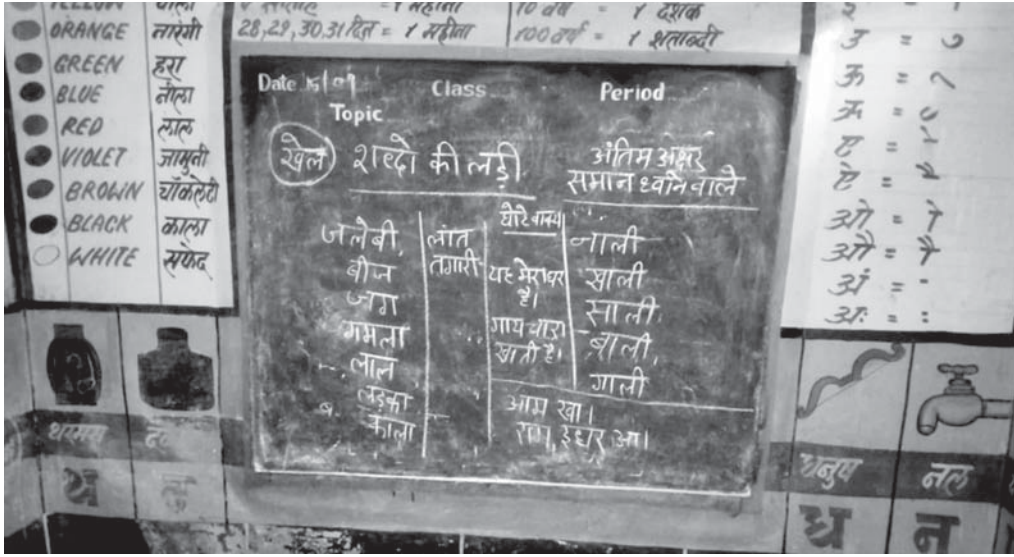 YELLOW पीला
ORANGE नारंगी
GREEN हरा
BLUE नीला
RED लाल
VIOLET जामुनी
BROWN चॉकलेटी
BLACK काला
WHITE सफेद
= 1 महीना
28,29,30,31 दिन = 1 महीना
10 वर्ष = 1 दशक
100 वर्ष = 1 शताब्दी
Date 15/09 Class Period
Topic
खेल शब्दो की लड़ी
अंतिम अक्षर
समान ध्वनि वाले
जलेबी,
बीज
जग
गमला
लाल
लड़का
काला
लात
तगारी
छोटे वाक्य
यह मेरा घर
है।
गाय चारा
खाती है।
नाली
खाली
साली
बाली,
गाली
आम खा।
राम, इधर आ।
उ =
ऊ =
ऋ =
ए =
ऐ =
ओ = ो
औ = ौ
अं =
अः =
थरमस
थ
धनुष
ध
नल
न